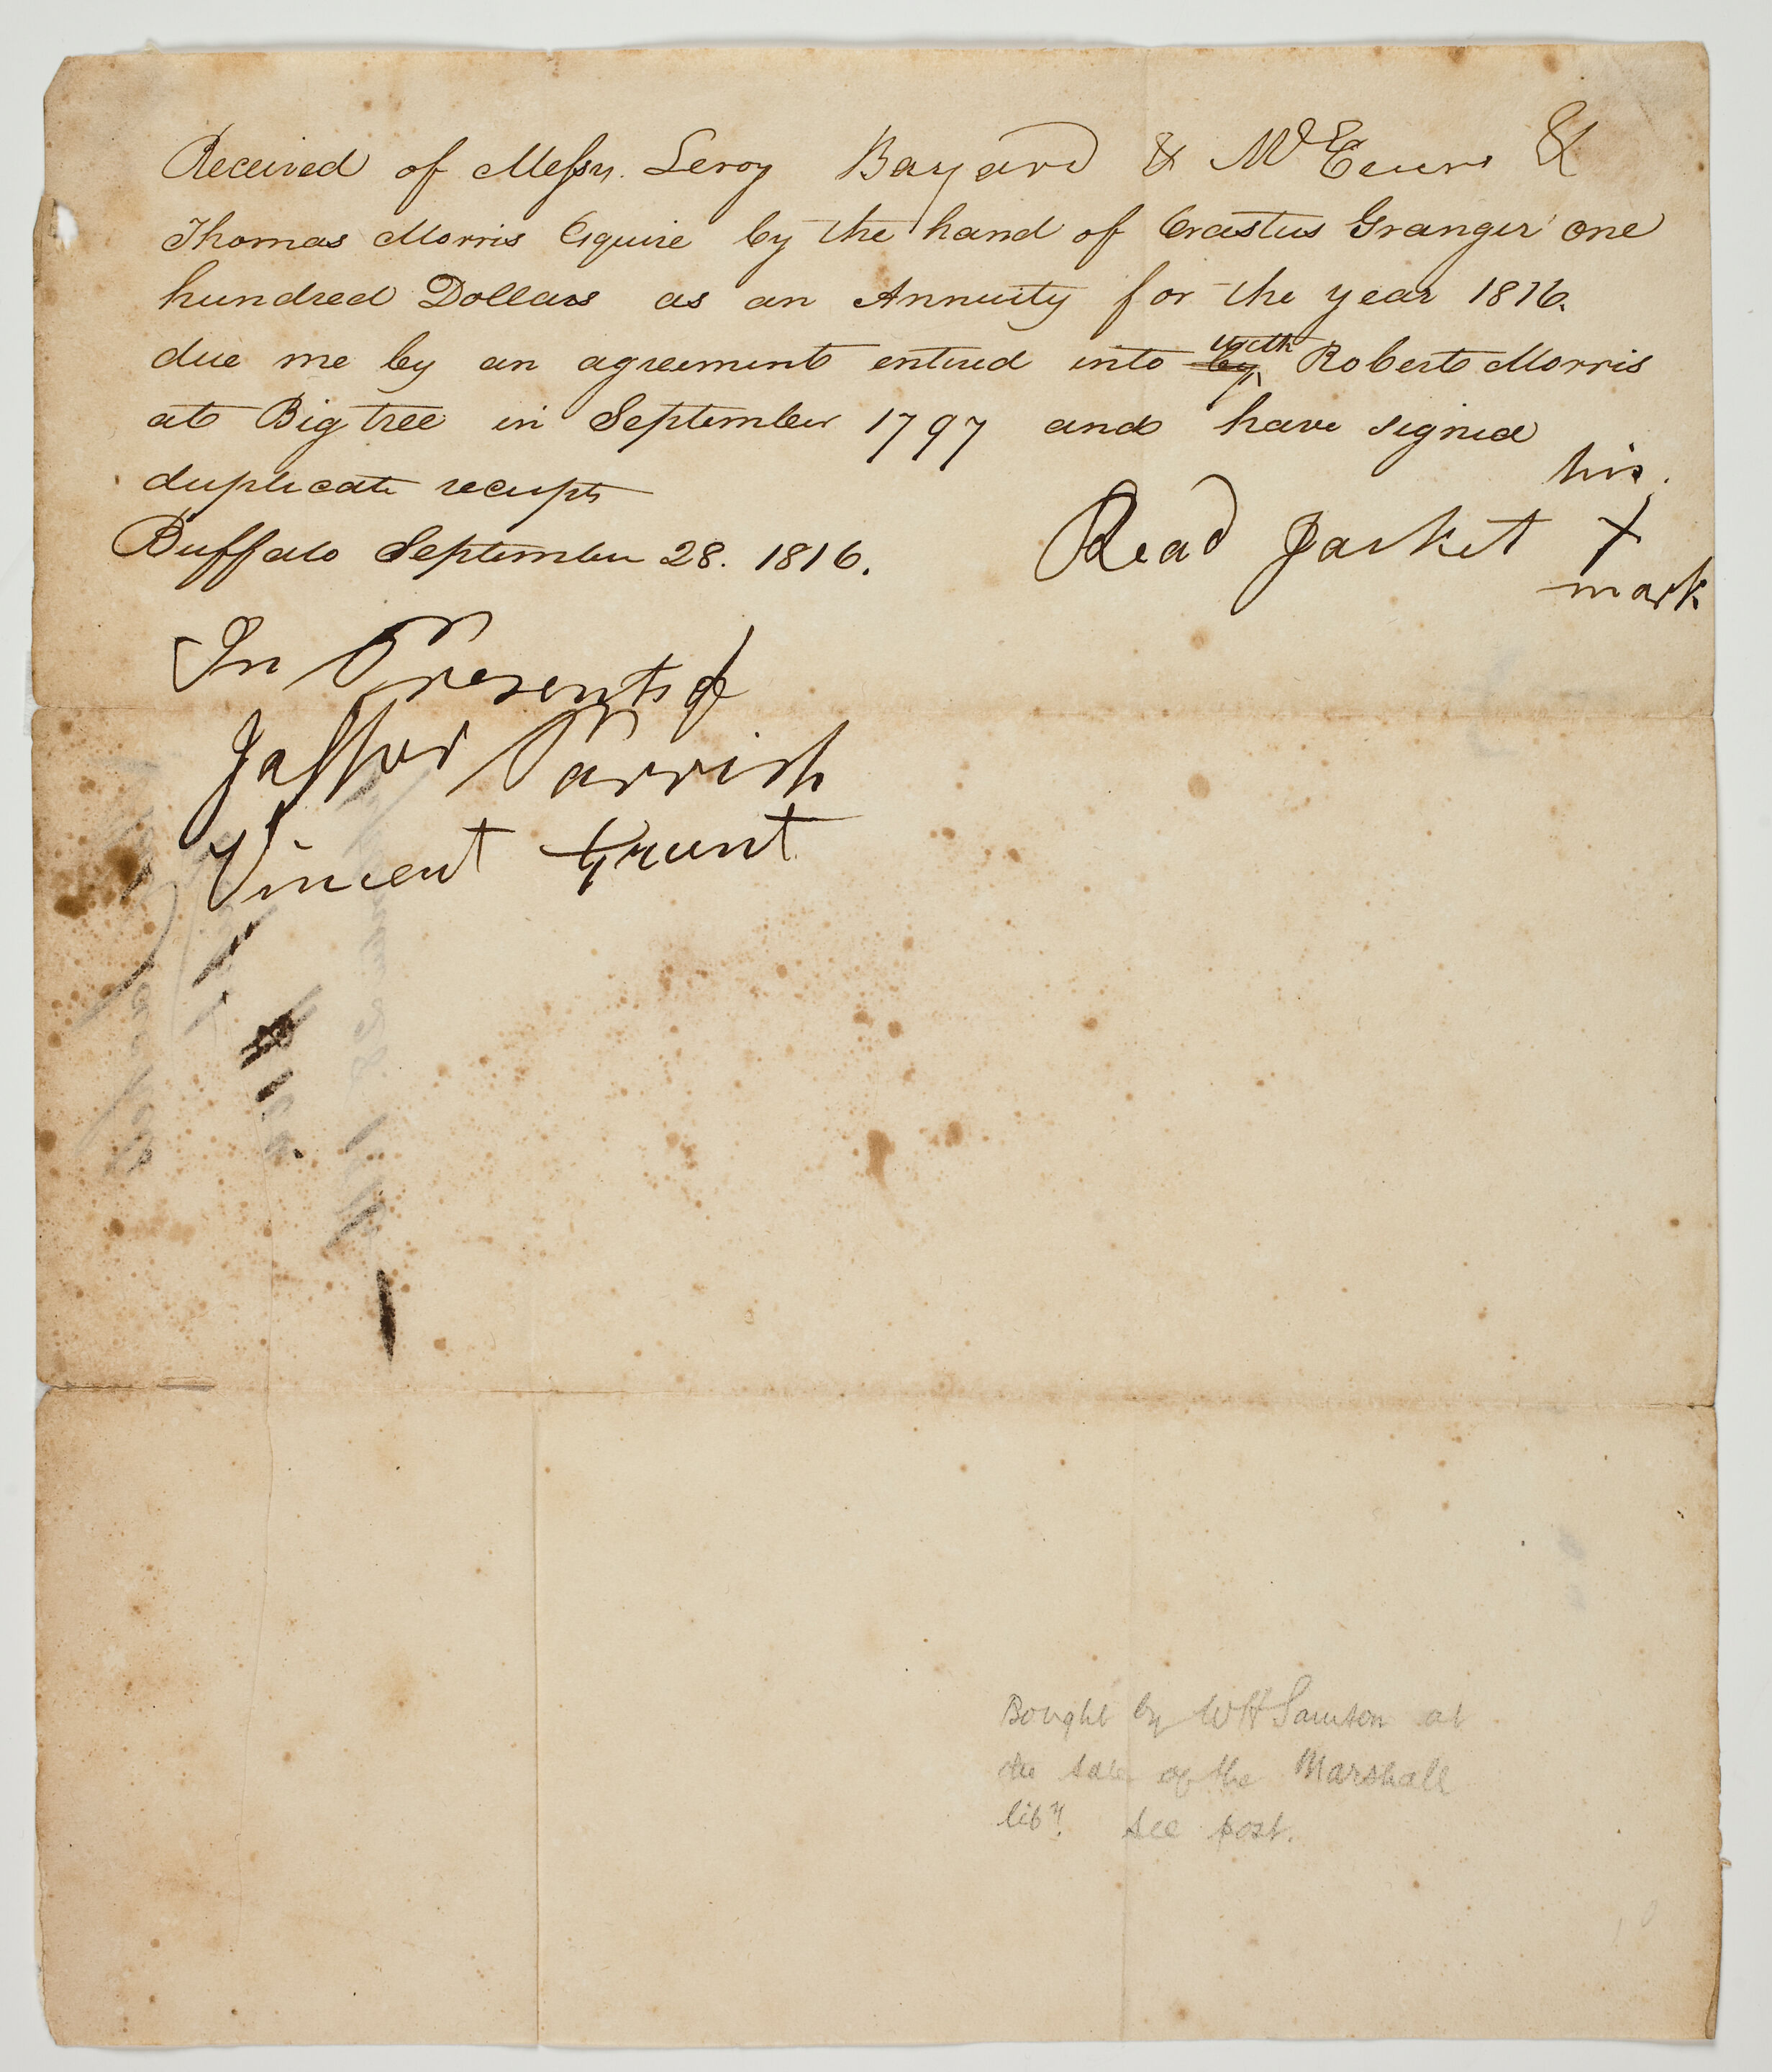 Received of Messrs. Leroy Bayard & McEvers &
Thomas Morris Esquire by the hand of Erastus Granger one
hundred Dollars as an Annuity for the year 1816.
due me by an agreement entered into by with Robert Morris
at Big tree in September 1797 and have signed
duplicate receipts
Buffalo September 28. 1816.
his
Read Jacket X
mark
In Presents of
Jasper Parrish
Vincent Grant
Bought by WH Samson at
the sale of the Marshall
liby. See post.